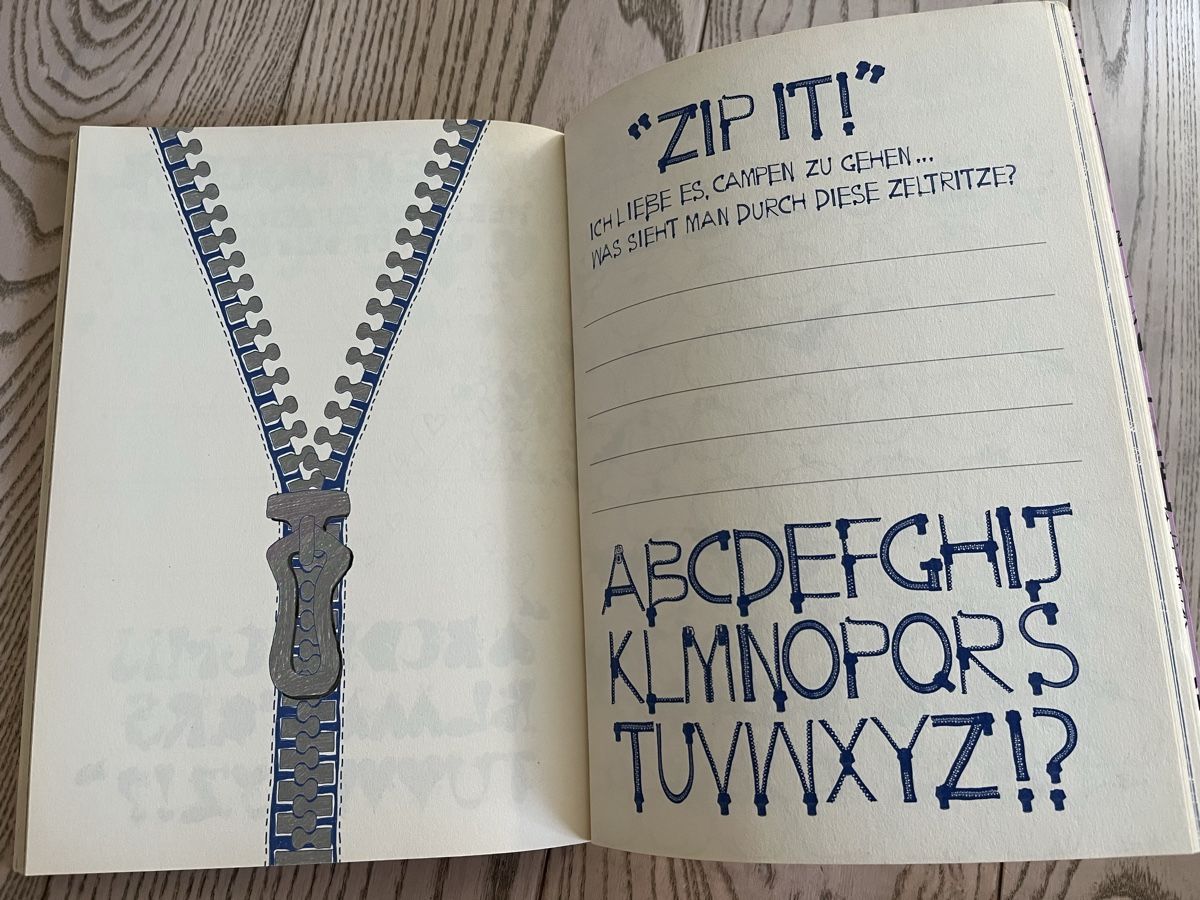 "ZIP IT!"
ICH LIEBE ES, CAMPEN ZU GEHEN...
WAS SIEHT MAN DURCH DIESE ZELTRITZE?
ABCDEFGHIJ
KLMNOPQRS
TUVWXYZ!?